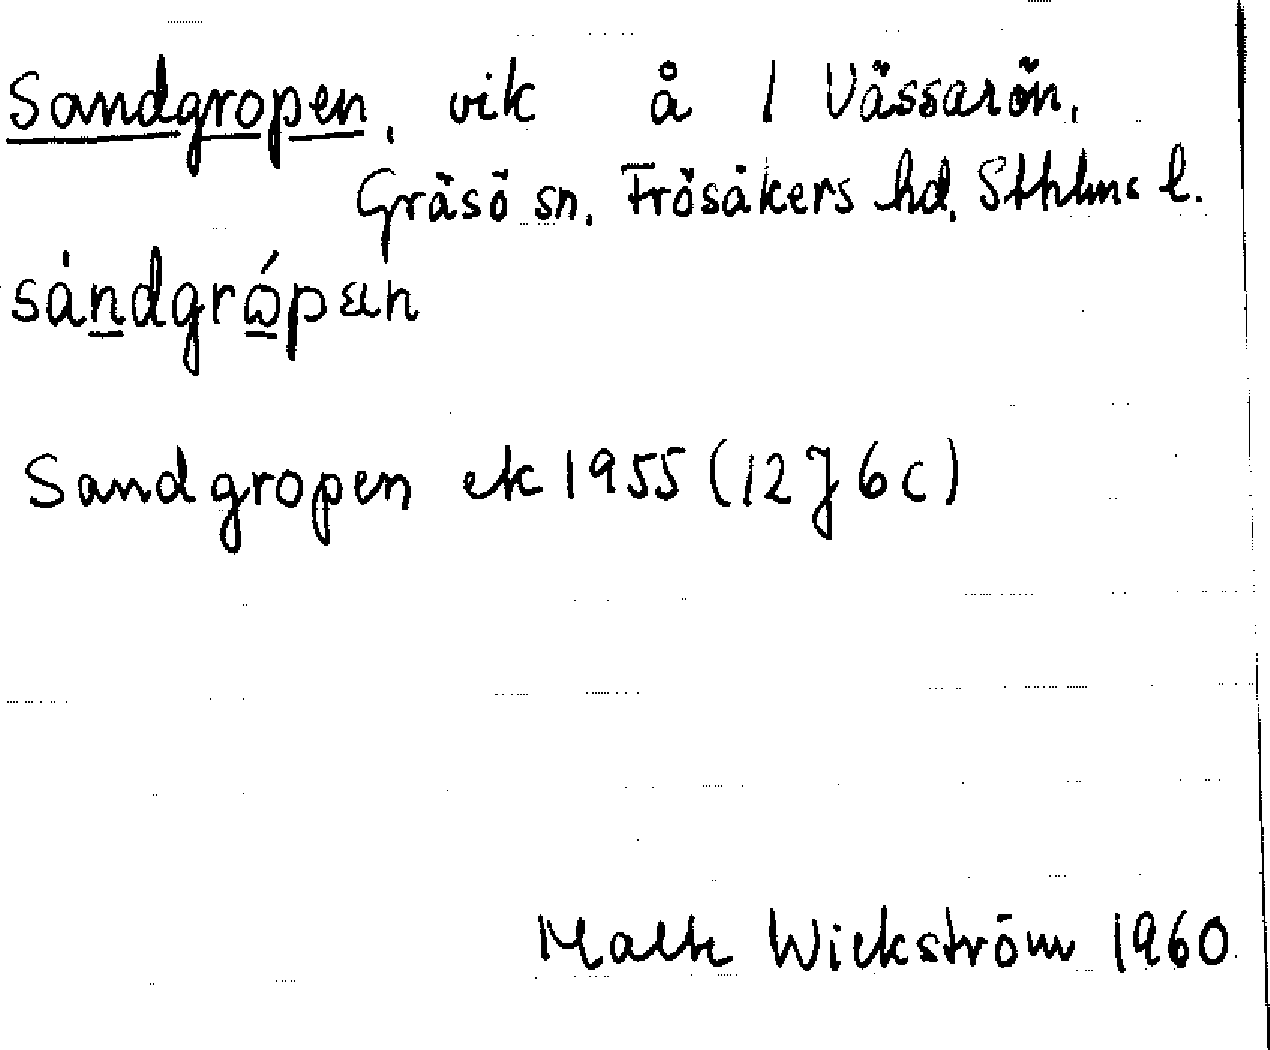 Sandgropen, vik å 1 Vässarön,
Gräsö sn, Frösåkers hd, Sthlms l.
sándgrópən
Sandgropen ek 1955 (12J6c)
Malte Wickström 1960